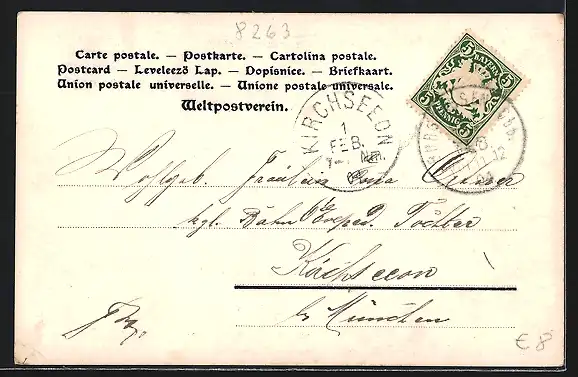 8263
Carte postale. — Postkarte. — Cartolina postale.
Postcard — Levelező Lap. — Dopisnice. — Briefkaart.
Union postale universelle. — Unione postale universale.
Weltpostverein.
BAYERN
5 5 5 5
PFENNIG
KIRCHSEEON
1
FEB.
Nm.
Wohlgeb. Fräulein
kgl. Bahn Exped. Tochter
Kirchseeon
by München
€ 8